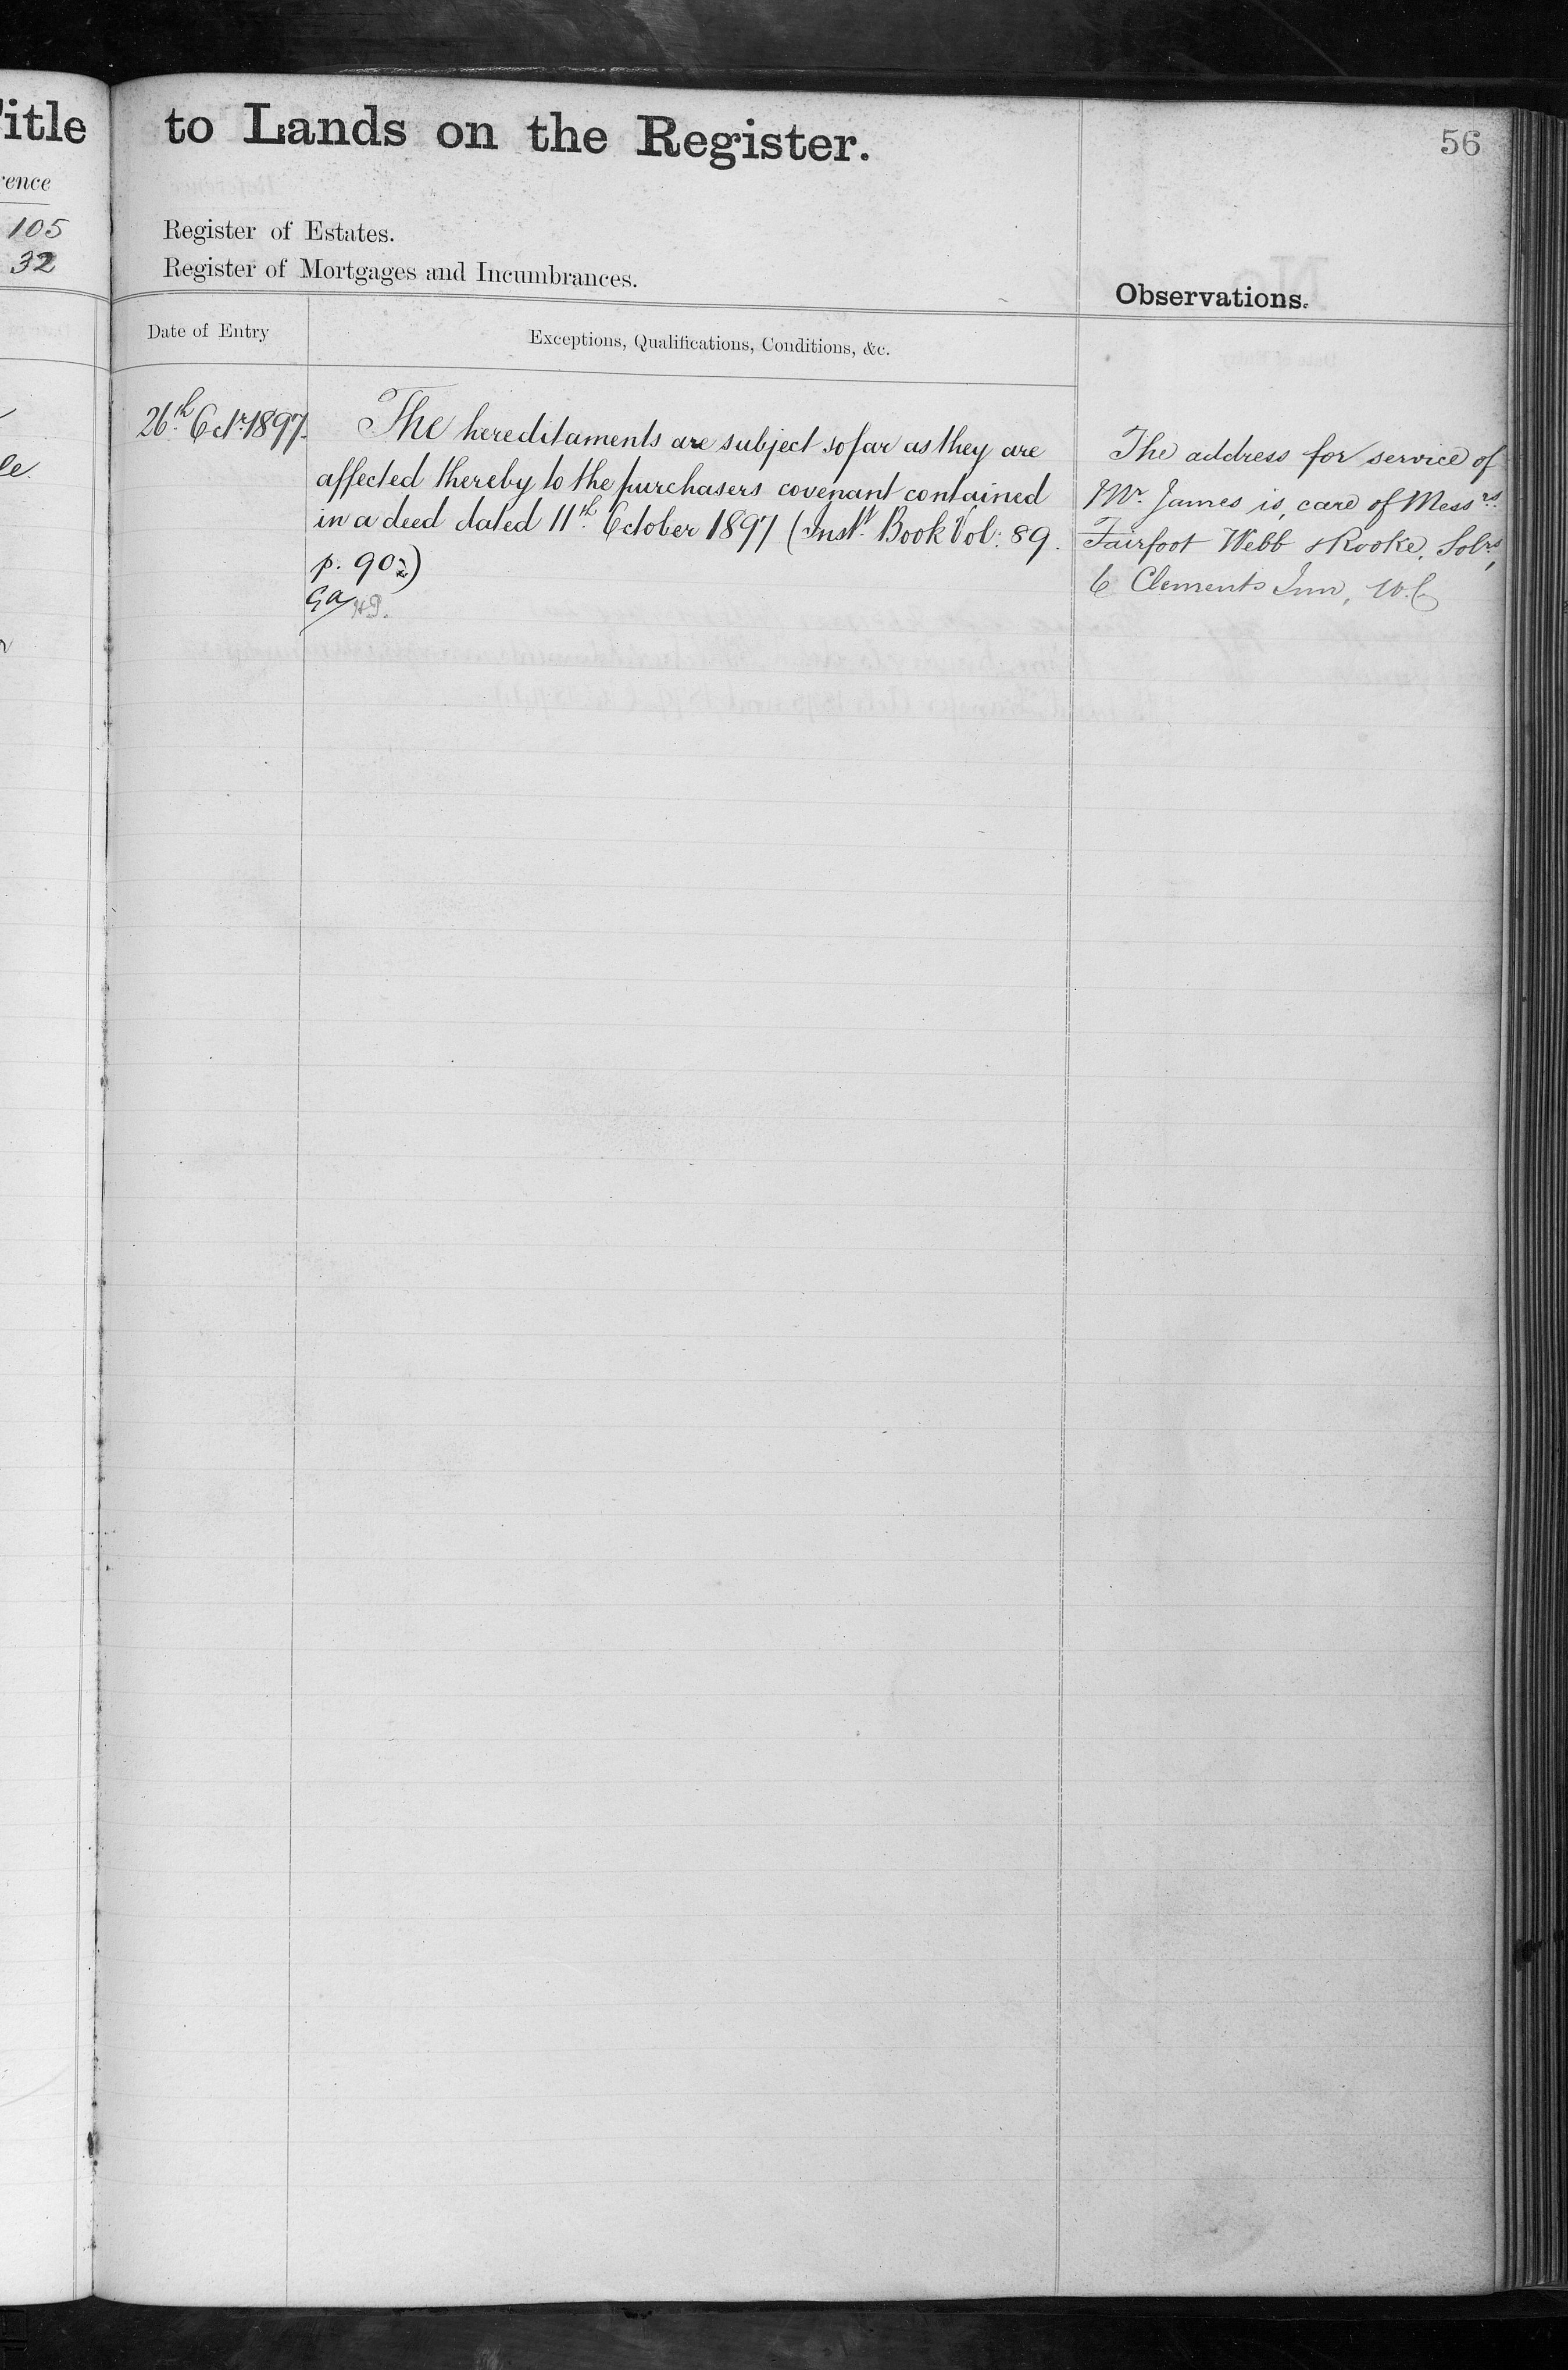 itle
to Lands on the Register.
56
rence
105
32
Register of Estates.
Register of Mortgages and Incumbrances.
Observations.
Date of Entry
Exceptions, Qualifications, Conditions, &c.
26th Octr 1897.
The hereditaments are subject so far as they are
affected thereby to the purchasers covenant contained
in a deed dated 11th October 1897 (Inst. Book Vol: 89.
p. 90.)
The address for service of
Mr. James is, care of Messrs.
Fairfoot Webb & Rooke, Solrs,
Clements Inn, W.C
le.